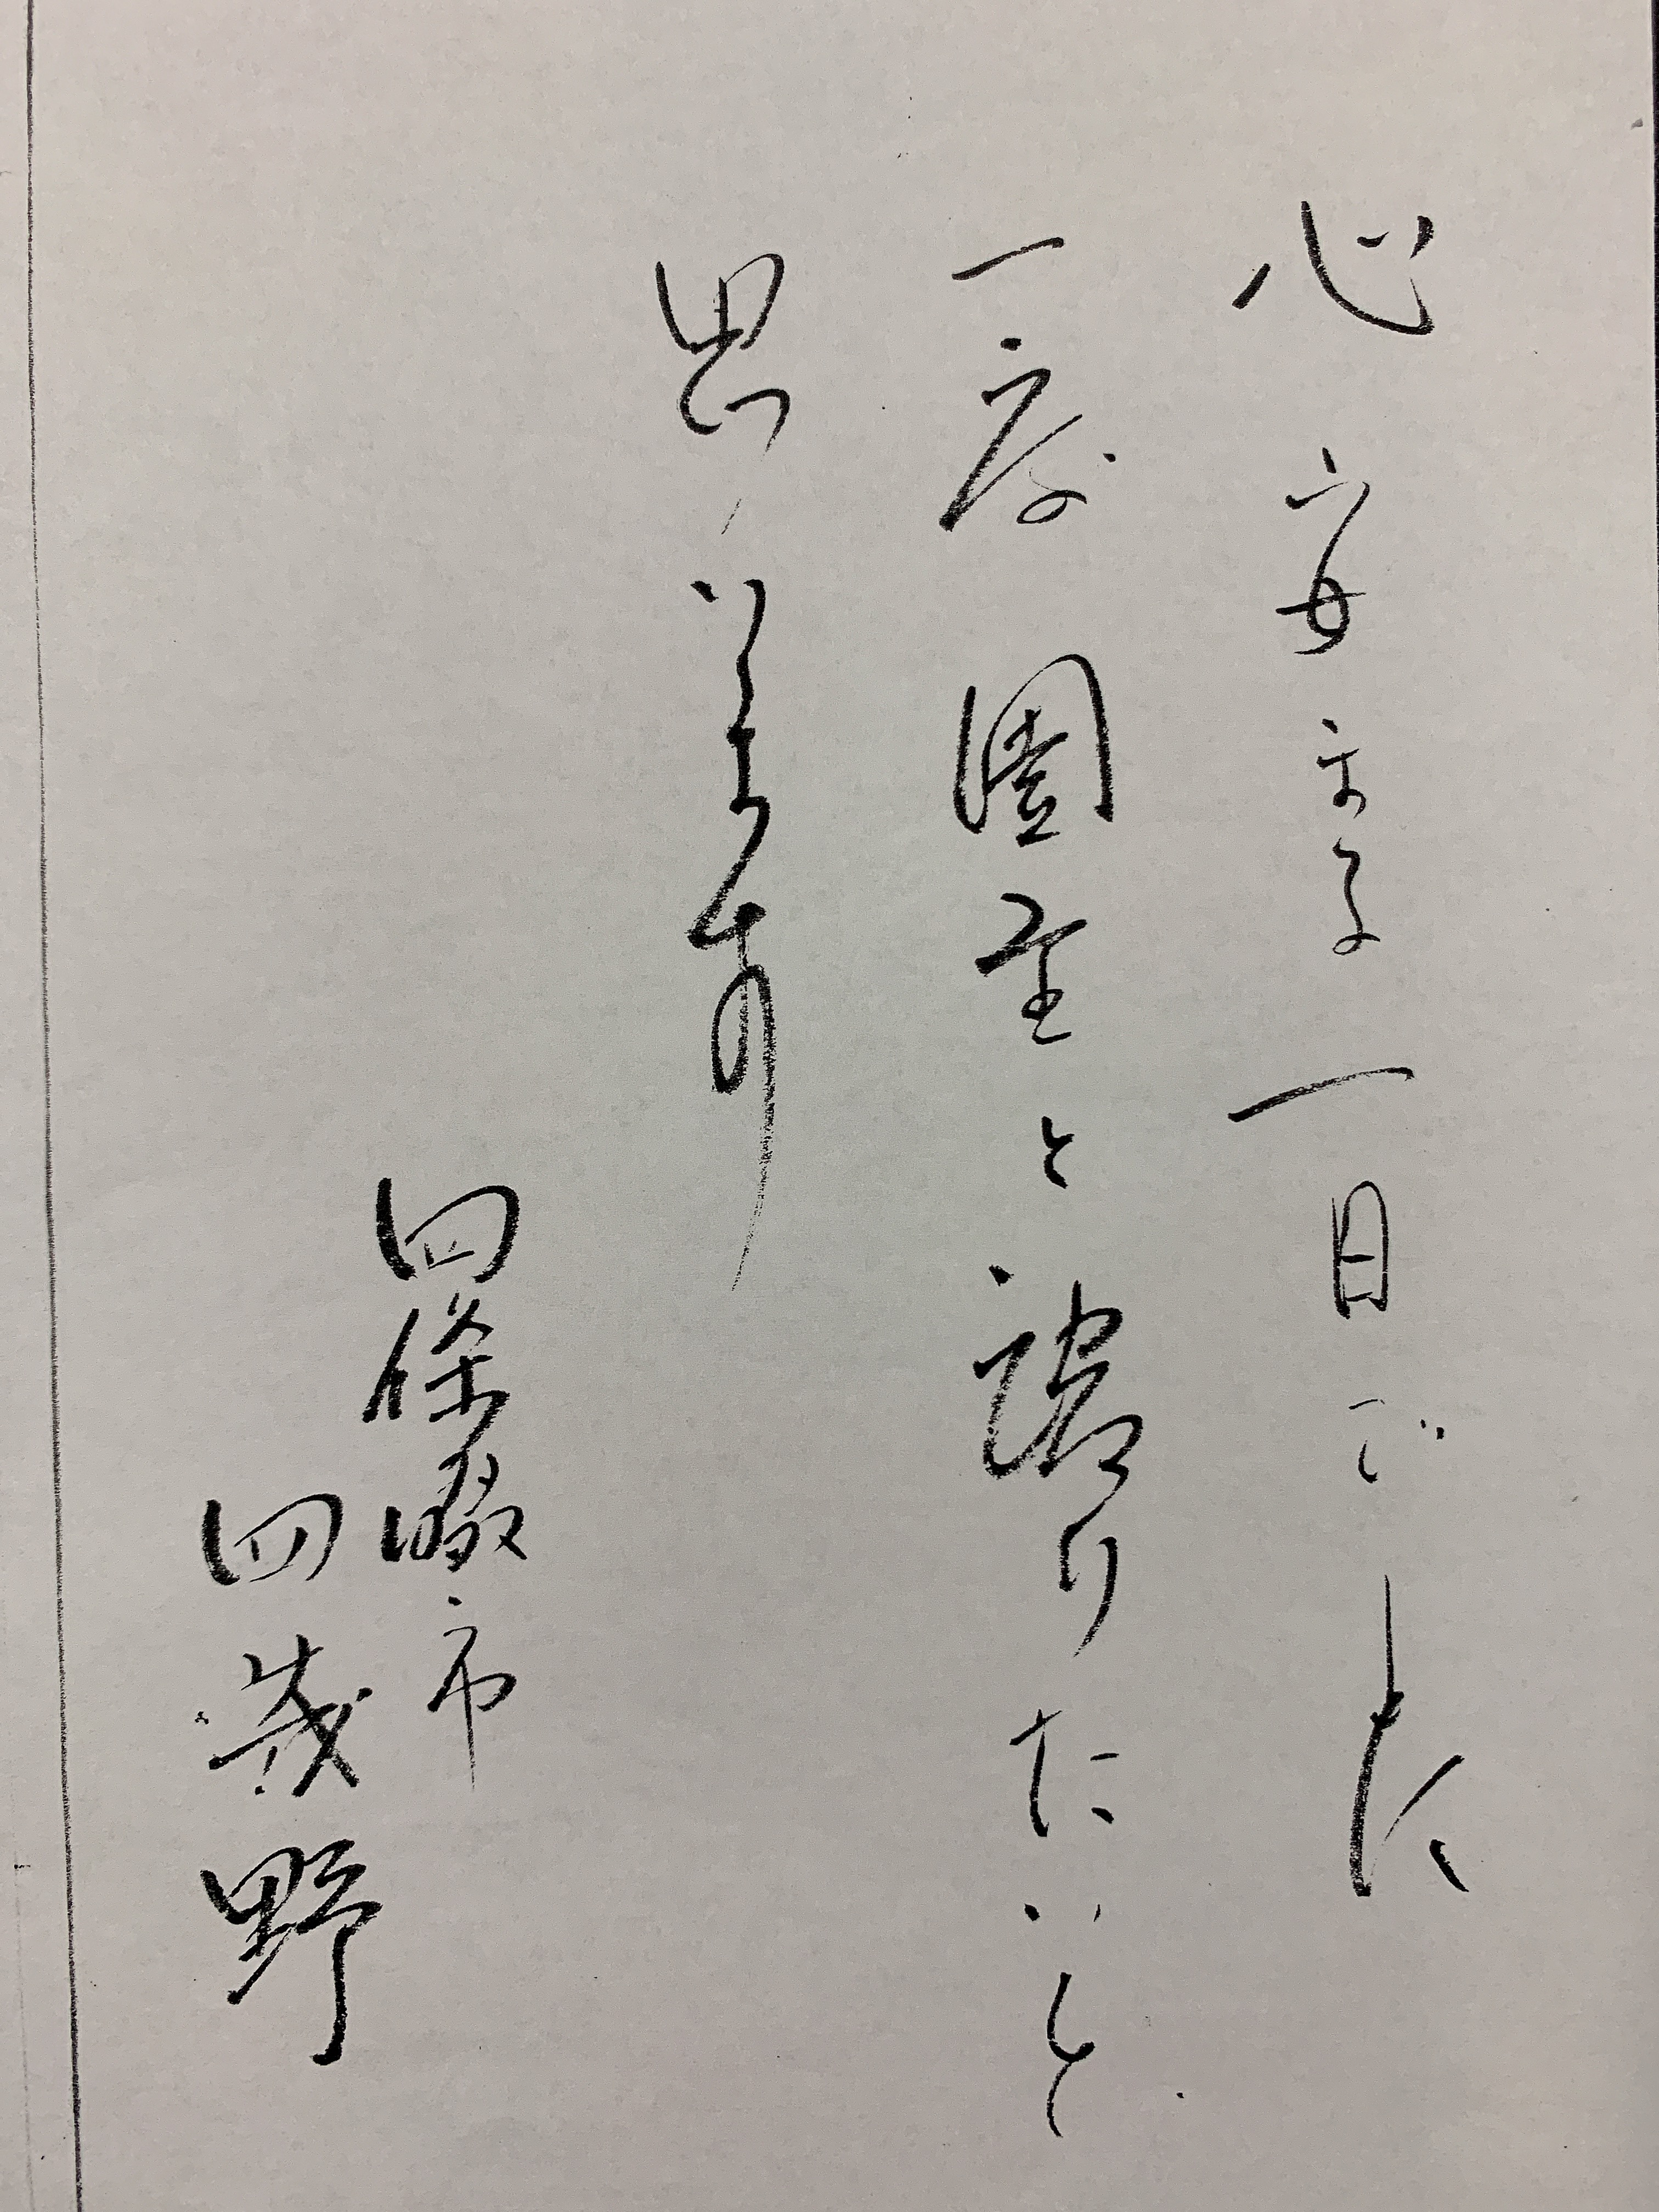 心安まる一日でした
一度園主と語りたいと
思います
四條畷市
四歳野